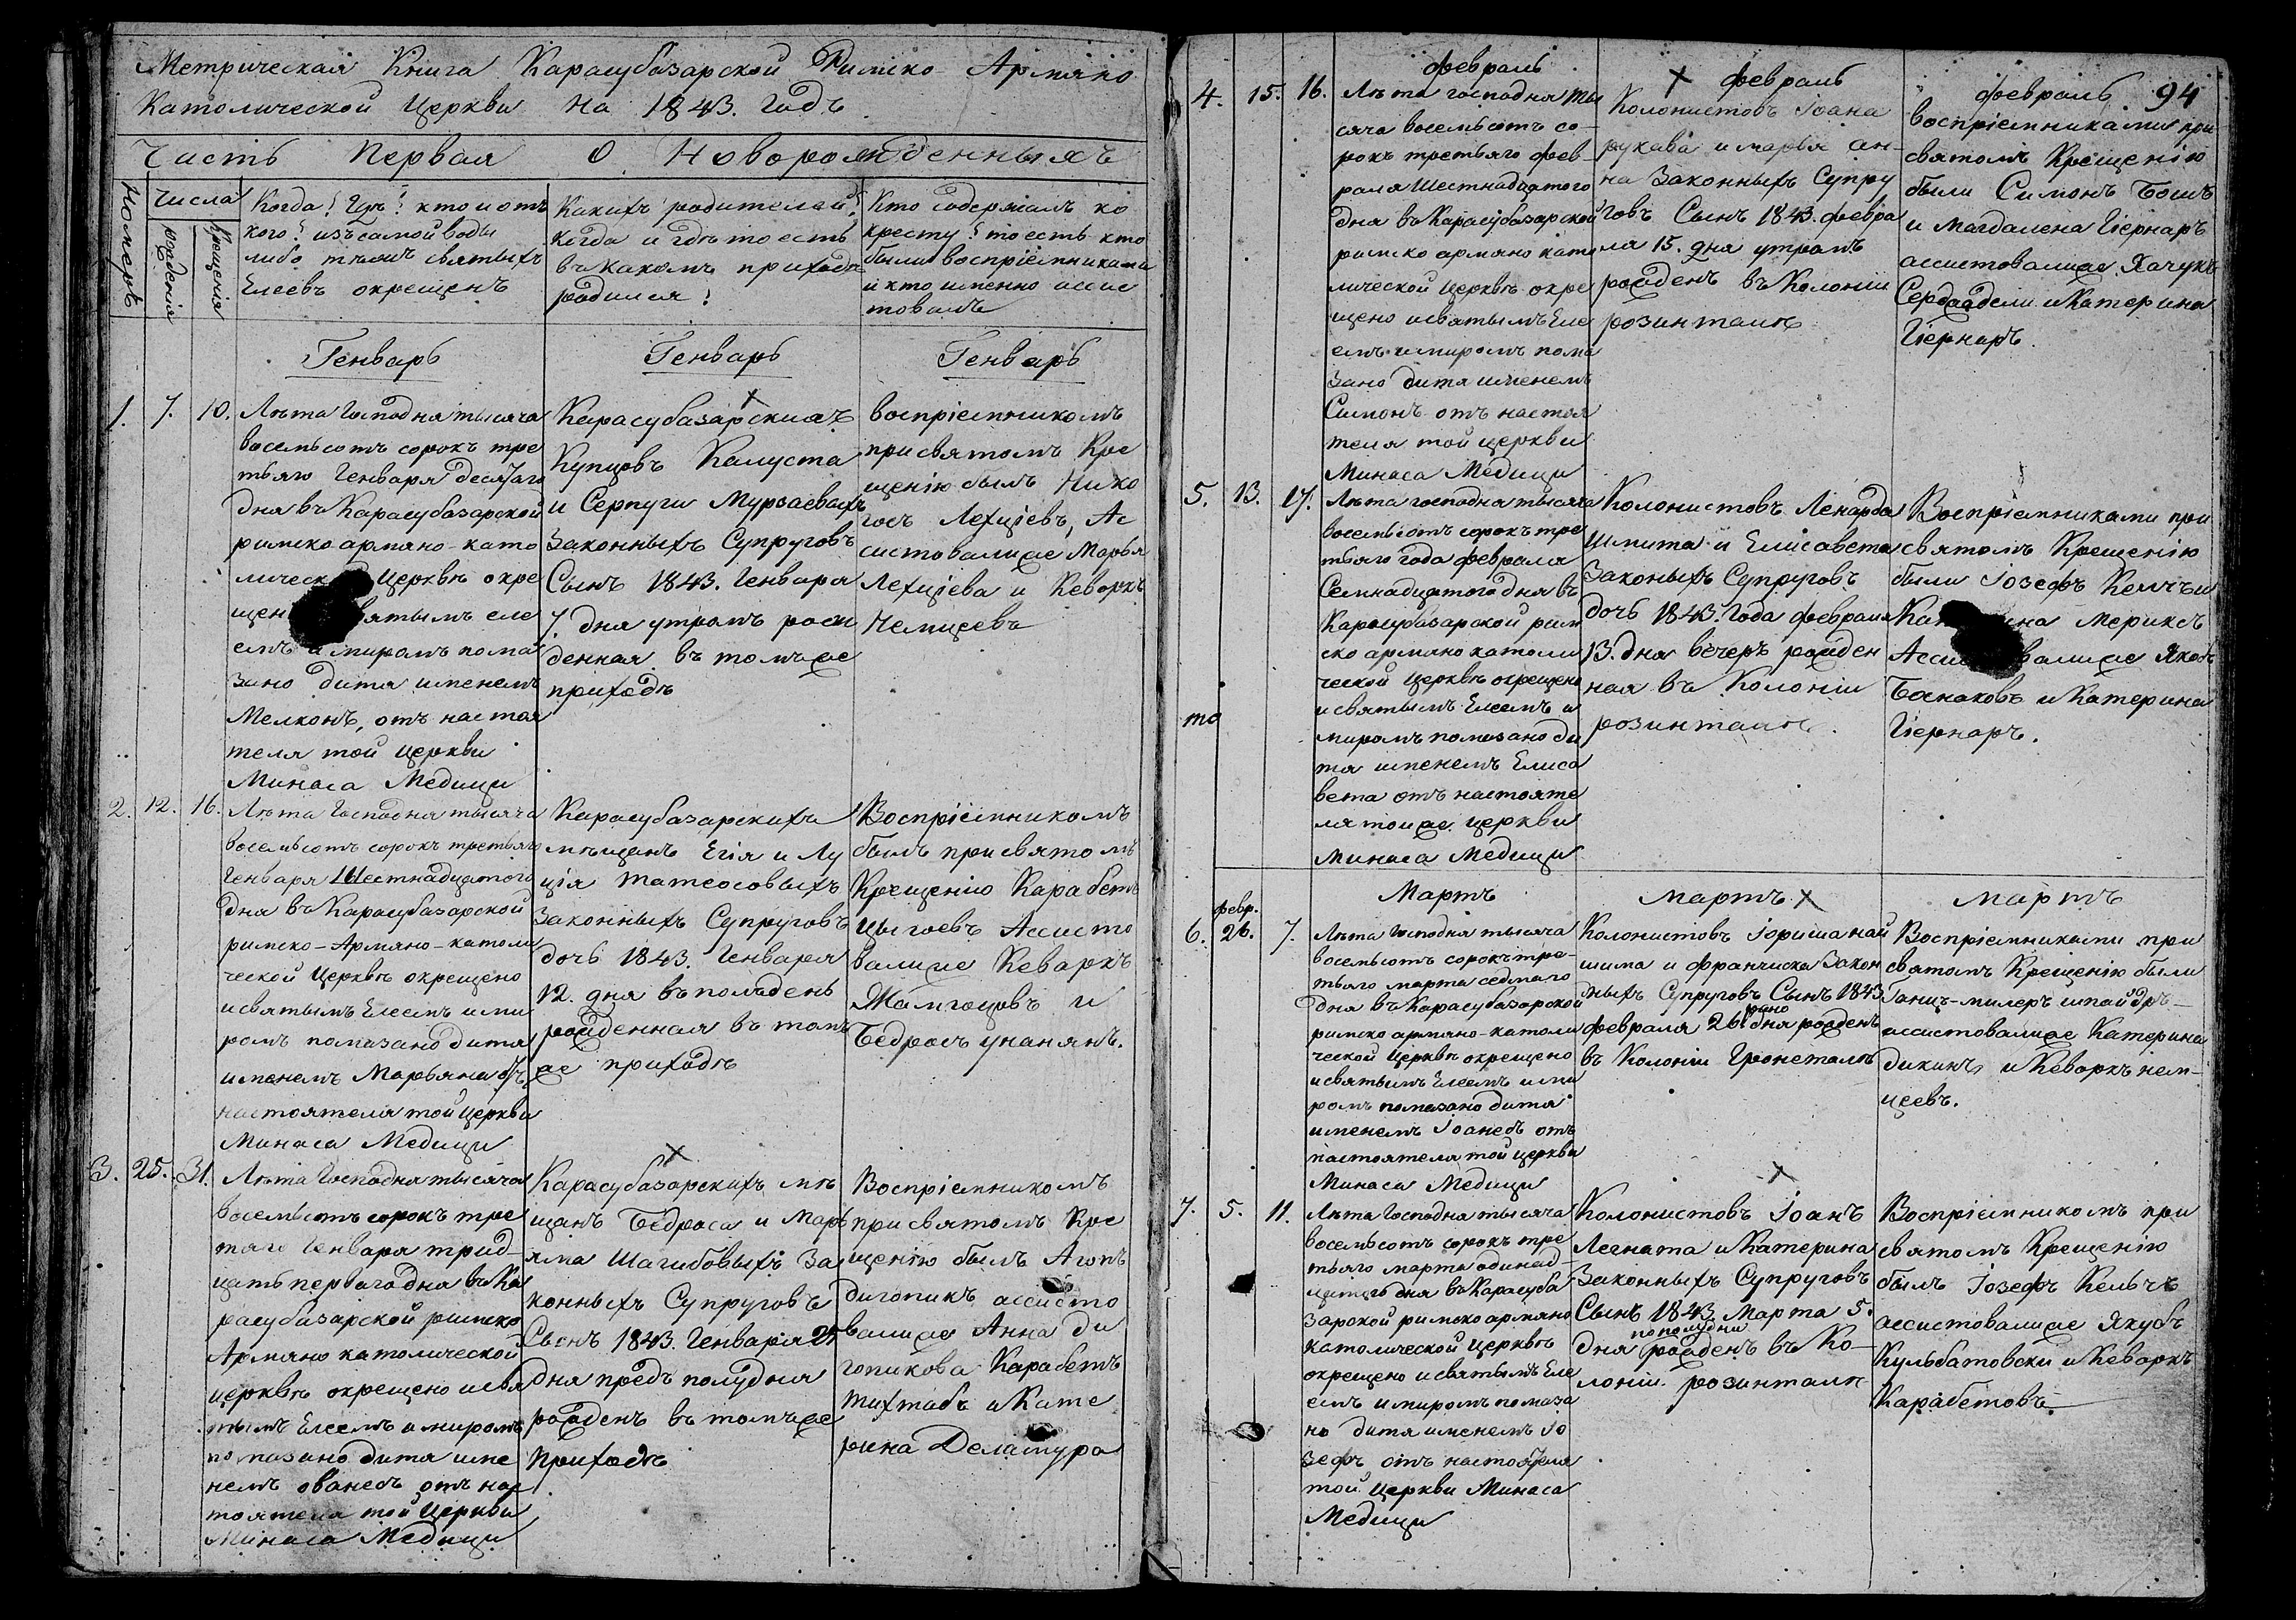 Метрическая Книга Карасубазарской Римско-Армяно
Католической Церкви на 1843. Годъ
Часть Первая О Новорожденныхъ
Номеръ
Числа
рождения
Крещения
Когда? Гдѣ? кто и отъ
кого? изъ самой воды
либо тѣми святыхъ
Елеевъ окрещенъ
Какихъ родителей?
когда и гдѣ то есть
въ какомъ приходѣ
родился?
Кто содержалъ ко
кресту? то есть кто
были воспріемниками
и кто именно асис
товалъ
Генварь
Генварь
Генварь
1. 7. 10.
Лѣта Господня тысяча
восемьсотъ сорокъ тре
тьяго Генваря десятаго
дня въ Карасубазарской
римско армяно-като
лическ Церквѣ окре
щен вятымъ еле
емъ и миромъ пома
зано дитя именемъ
Мелконъ, отъ настоя
теля той Церкви
Минаса Медици
Карасубазарскихъ
Купцовъ Калуста
и Серпуги Мурзаевыхъ
Законныхъ Супруговъ
Сынъ 1843. Генваря
7 дня утромъ рож
денная въ томъ же
приходѣ
воспріемникомъ
при святомъ Кре
щенію былъ Нико
госъ Лехціевъ, Ас
систовалиже Марья
Лехціева и Кеворкъ
Немцеевъ
2. 12. 16.
Лѣта Господня тысяча
восемьсотъ сорокъ третьяго
Генваря Шестнадцатого
дня въ Карасубазарской
римско-Армяно-католи
ческой Церквѣ окрещено
и святымъ Елеемъ и ми
ромъ помазано дитя
именемъ Марьяна отъ
настоятеля той Церкви
Минаса Медици
Карасубазарскихъ
мѣщанъ Егія и Лу
ція Татеосовыхъ
Законныхъ Супруговъ
дочь 1843. Генваря
12. дня въ полъдень
рожденная въ томъ
же приходѣ
Воспріемникомъ
былъ при святомъ
Крещенію Карабетъ
Цыгоевъ Ассисто
валиже Кеваркъ
Жамгоцовъ и
Бедросъ Унанянъ.
3. 25. 31.
Лѣта Господня тысяча
восемьсотъ сорокъ тре
тяго Генваря трид-
цать перваго дня въ Ка
расубазарской римско
Армяно католической
церквѣ окрещено и свя
тымъ Елеемъ и миромъ
помазано дитя име
немъ ованесъ отъ нас
тоятеля той Церкви
Минаса Медици
Карасубазарскихъ мѣ
щанъ Бедроса и Марь
яма Шагибовыхъ За
конныхъ Супруговъ
Сынъ 1843. Генваря 25
дня предъ полудня
рожденъ въ томъ же
приходѣ
Воспріемникомъ
при святомъ Кре
щенію былъ Агопъ
дигопикъ ассисто
валиже Анна ди
гопикова Карабетъ
Тихтабъ и Кате
рина Деламура
94
февраль
февраль
февраль
4. 15. 16.
Лѣта господня ты
сяча восемьсотъ со-
рокъ третьяго фев-
раля Шестнадцатого
дня въ Карасубазарской
римско армяно като
лической Церквѣ окре
щено и святымъ Еле
емъ и миромъ пома
зано дитя именемъ
Симонъ отъ настоя
теля той церкви
Минаса Медици
Колонистовъ Іоана
рукава и марья ан-
на Законныхъ Супру
говъ Сынъ 1843. февра
ля 15. дня утромъ
рожденъ въ Колоніи
розинталѣ
воспріемниками при
святомъ Крещенію
были Симонъ Бошъ
и Магдалена Гіернаръ
ассистовалиже Хачукъ
Сердаадели и Катерина
Гіернаръ.
5. 13. 17.
Лѣта господня тысяча
восемьсотъ сорокъ тре
тьяго года февраля
Семнадцатого дня въ
Карасубазарской рим
ско армяно католи
ческой Церквѣ окрещено
и святымъ Елеемъ и
миромъ помазано ди
тя именемъ Елиса
вета отъ настояте
ля тоиже церкви
Минаса Медици
то
Колонистовъ Ленарда
Шмита и Елисавета
Законыхъ Супруговъ
дочь 1843. Года февраля
13. дня вечеръ рожден
ная въ Колоніи
розинталѣ.
Воспріемниками при
святомъ Крещенію
были Іозефъ Келчъ и
Ка на Мериксъ
Асси валиже Якобъ
Баснаковъ и Катерина
Гіернаръ.
Мартъ
мартъ
мартъ
февр.
6. 26. 7.
Лѣта Господня тысяча
восемьсотъ сорокъ тре-
тьяго марта седмаго
дня въ Карасубазарской
римско армяно-католи
ческой Церквѣ окрещено
и святымъ Елеемъ и ми
ромъ помазано дитя
именемъ Іоанесъ отъ
настоятеля той церкви
Минаса Медици
Колонистовъ Юриша най
шима и франчиска Закон
ныхъ Супруговъ Сынъ 1843
рано
февраля 26. дня рожденъ
въ Колоніи Гронсталѣ
Воспріемниками при
святомъ Крещенію были
Ганцъ-милеръ шнайдръ-
ассистовалиже Катерина
дикинъ и Кеворкъ нем-
цеевъ.
7. 5. 11.
Лѣта Господня тысяча
восемьсотъ сорокъ тре
тьяго марта одинад-
цатого дня въ Карасуба
зарской римско армяно
католической Церквѣ
окрещено и святымъ Еле
емъ и миромъ помаза
но дитя именемъ Іо
зефъ отъ настоятеля
той Церкви Минаса
Медици
Колонистовъ Іоанъ
Легната и Катерина
Законныхъ Супруговъ
Сынъ 1843. Марта 5.
пополудни
дня рожденъ въ Ко-
лоніи розинталѣ
Воспріемникомъ при
святомъ Крещенію
былъ Іозефъ Кельчъ
ассистовалиже Якубъ
Кульбатовски и Кеворкъ
Карабетовъ